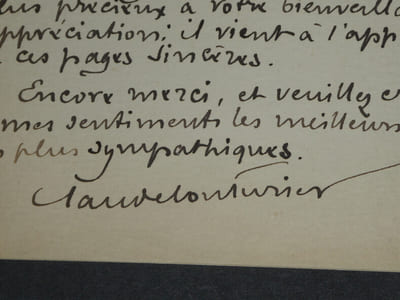 plus précieux à votre bienveilla
ppréciation; il vient à l'app
ces pages sincères.
Encore merci, et veuillez c
mes sentiments les meilleurs
plus sympathiques.